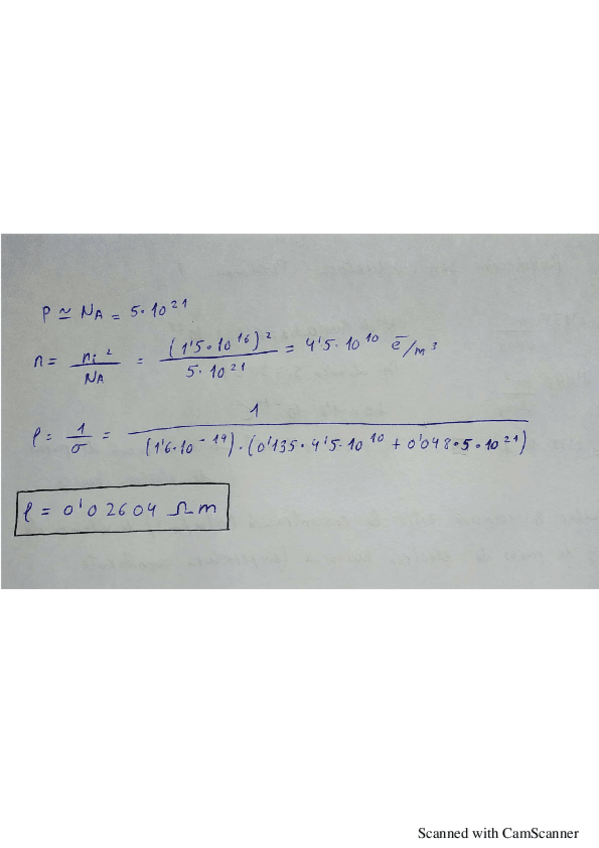 P ≃ N_A = 5·10^21
n = n_i^2 / N_A = (1'5·10^16)^2 / 5·10^21 = 4'5·10^10 e̅/m^3
ρ = 1/σ = 1 / (1'6·10^-19)·(0'135·4'5·10^10 + 0'048·5·10^21)
ρ = 0'02604 Ωm
Scanned with CamScanner